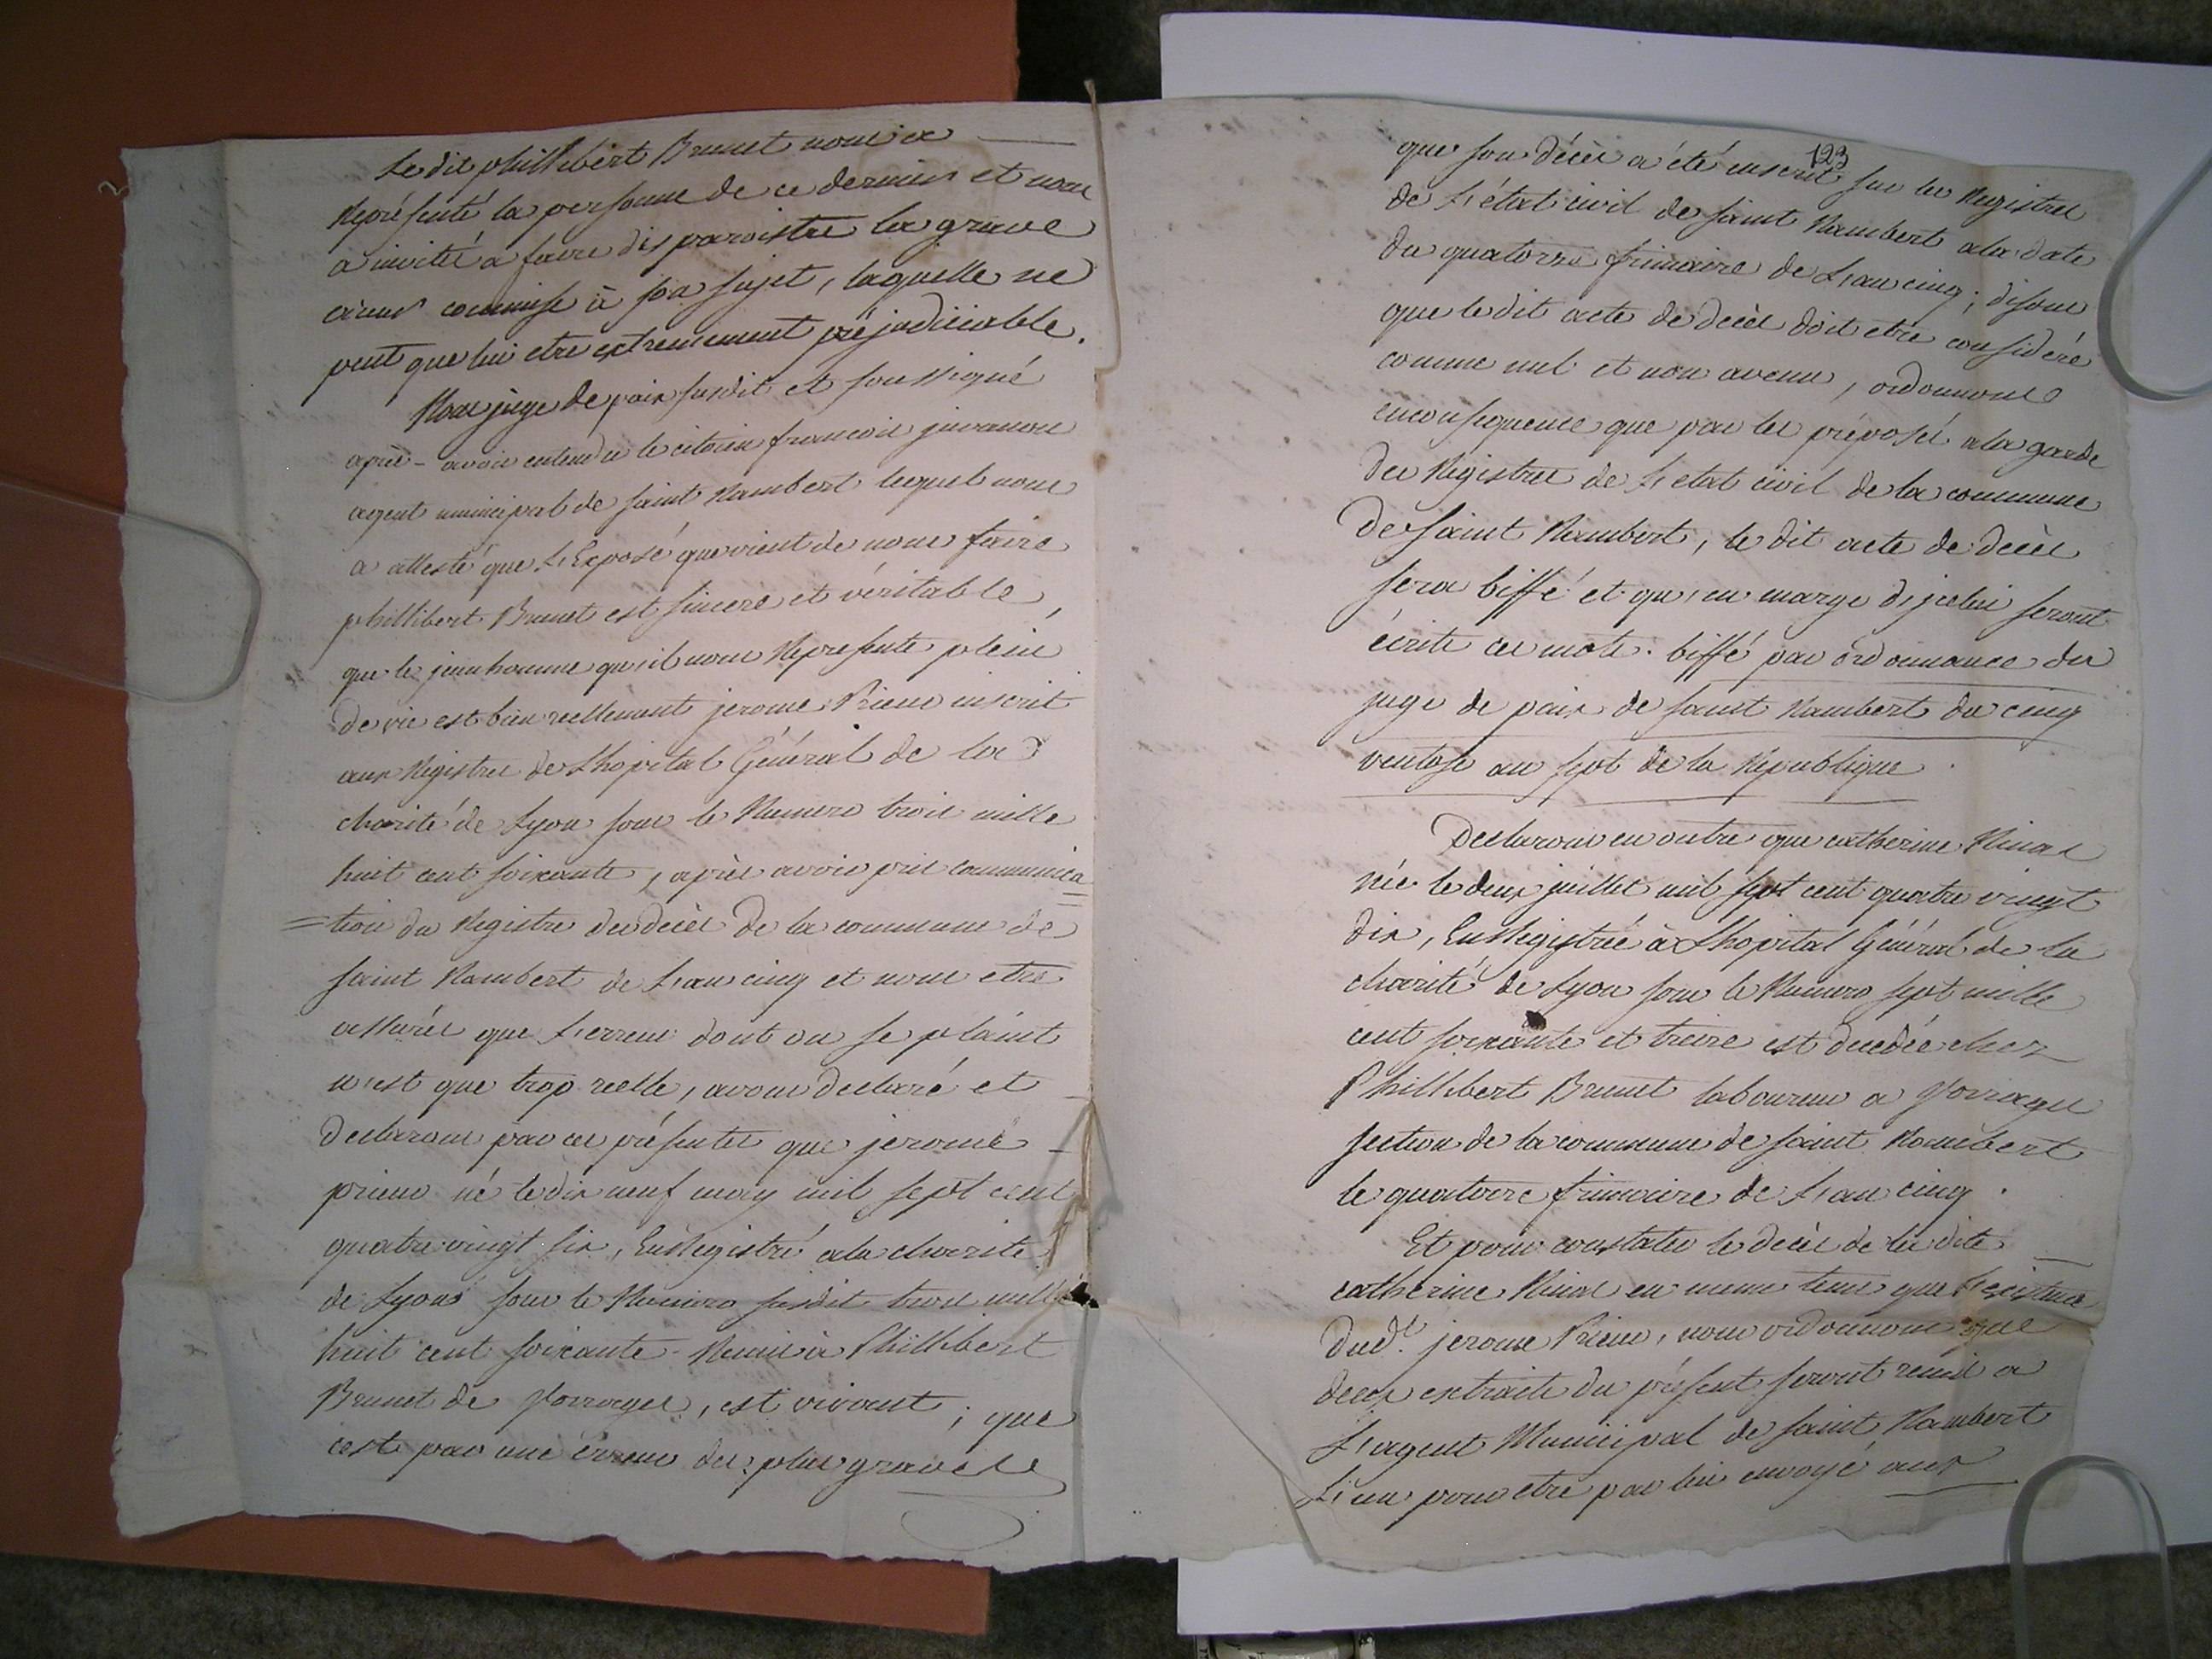 Le dit phillibert Brunet nous a
Représenté la personne de ce dernier et nous
a invité a faire disparoistre la grave
erreur commise à son sujet, laquelle ne
peut que lui etre extremement préjudiciable.
Nous juge de paix susdit et soussigné
après avoir entendu le citoien francois juvanon
agent municipal de saint Rambert lequel nous
a attesté que L'Exposé que vient de nous faire
phillibert Brunet est sincere et véritable,
que le jeun homme qu'il nous Represente plein
de vie est bien reellement jerome Prieur inscrit
aux Registres de Lhopital Général de la
charité de Lyon sous le Numero trois mille
huit cent soixante, après avoir pris communica
=tion du Registre des decès de la commune de
saint Rambert de L'an cinq et nous etre
assurés que L'erreur dont on se plaint
n'est que trop reelle, avons declaré et
declarons par ces présentes que jerome
prieur né le dix neuf may mil sept cent
quatre vingt six, Enregistré a la charité
de Lyon sous le Numero susdit trois mille
huit cent soixante Remis à Phillibert
Brunet de Vorrages, est vivant; que
c'est par une Erreur des plus graves
123
que son décès a été inscrit sur les Registres
de L'état civil de saint Rambert a la date
du quatorze frimaire de L'an cinq; disons
que le dit acte de decès doit etre considéré
comme nul et non avenu, ordonnons
en consequence que par les préposés a la garde
des Registres de L'etat civil de la commune
de saint Rambert, le dit acte de decès
sera biffé et qu'en marge d'icelui seront
écrits ces mots: biffé par ordonnance du
juge de paix de saint Rambert du cinq
ventose an sept de la Republique.
Declarons en outre que catherine Ninal
née le deux juillet mil sept cent quatre vingt
dix, Enregistrée à Lhopital Général de la
charité de Lyon sous le Numero sept mille
cent soixante et treize est decedée chez
Phillibert Brunet laboureur a Vorrages
section de la commune de saint Rambert
le quatorze frimaire de L'an cinq.
Et pour constater le decès de la dite
catherine Ninal en meme tems que L'existence
dud.t jerome Prieur, nous ordonnons que
deux extraits du présent seront remis a
L'agent Municipal de saint Rambert
L'un pour etre par lui envoyé aux